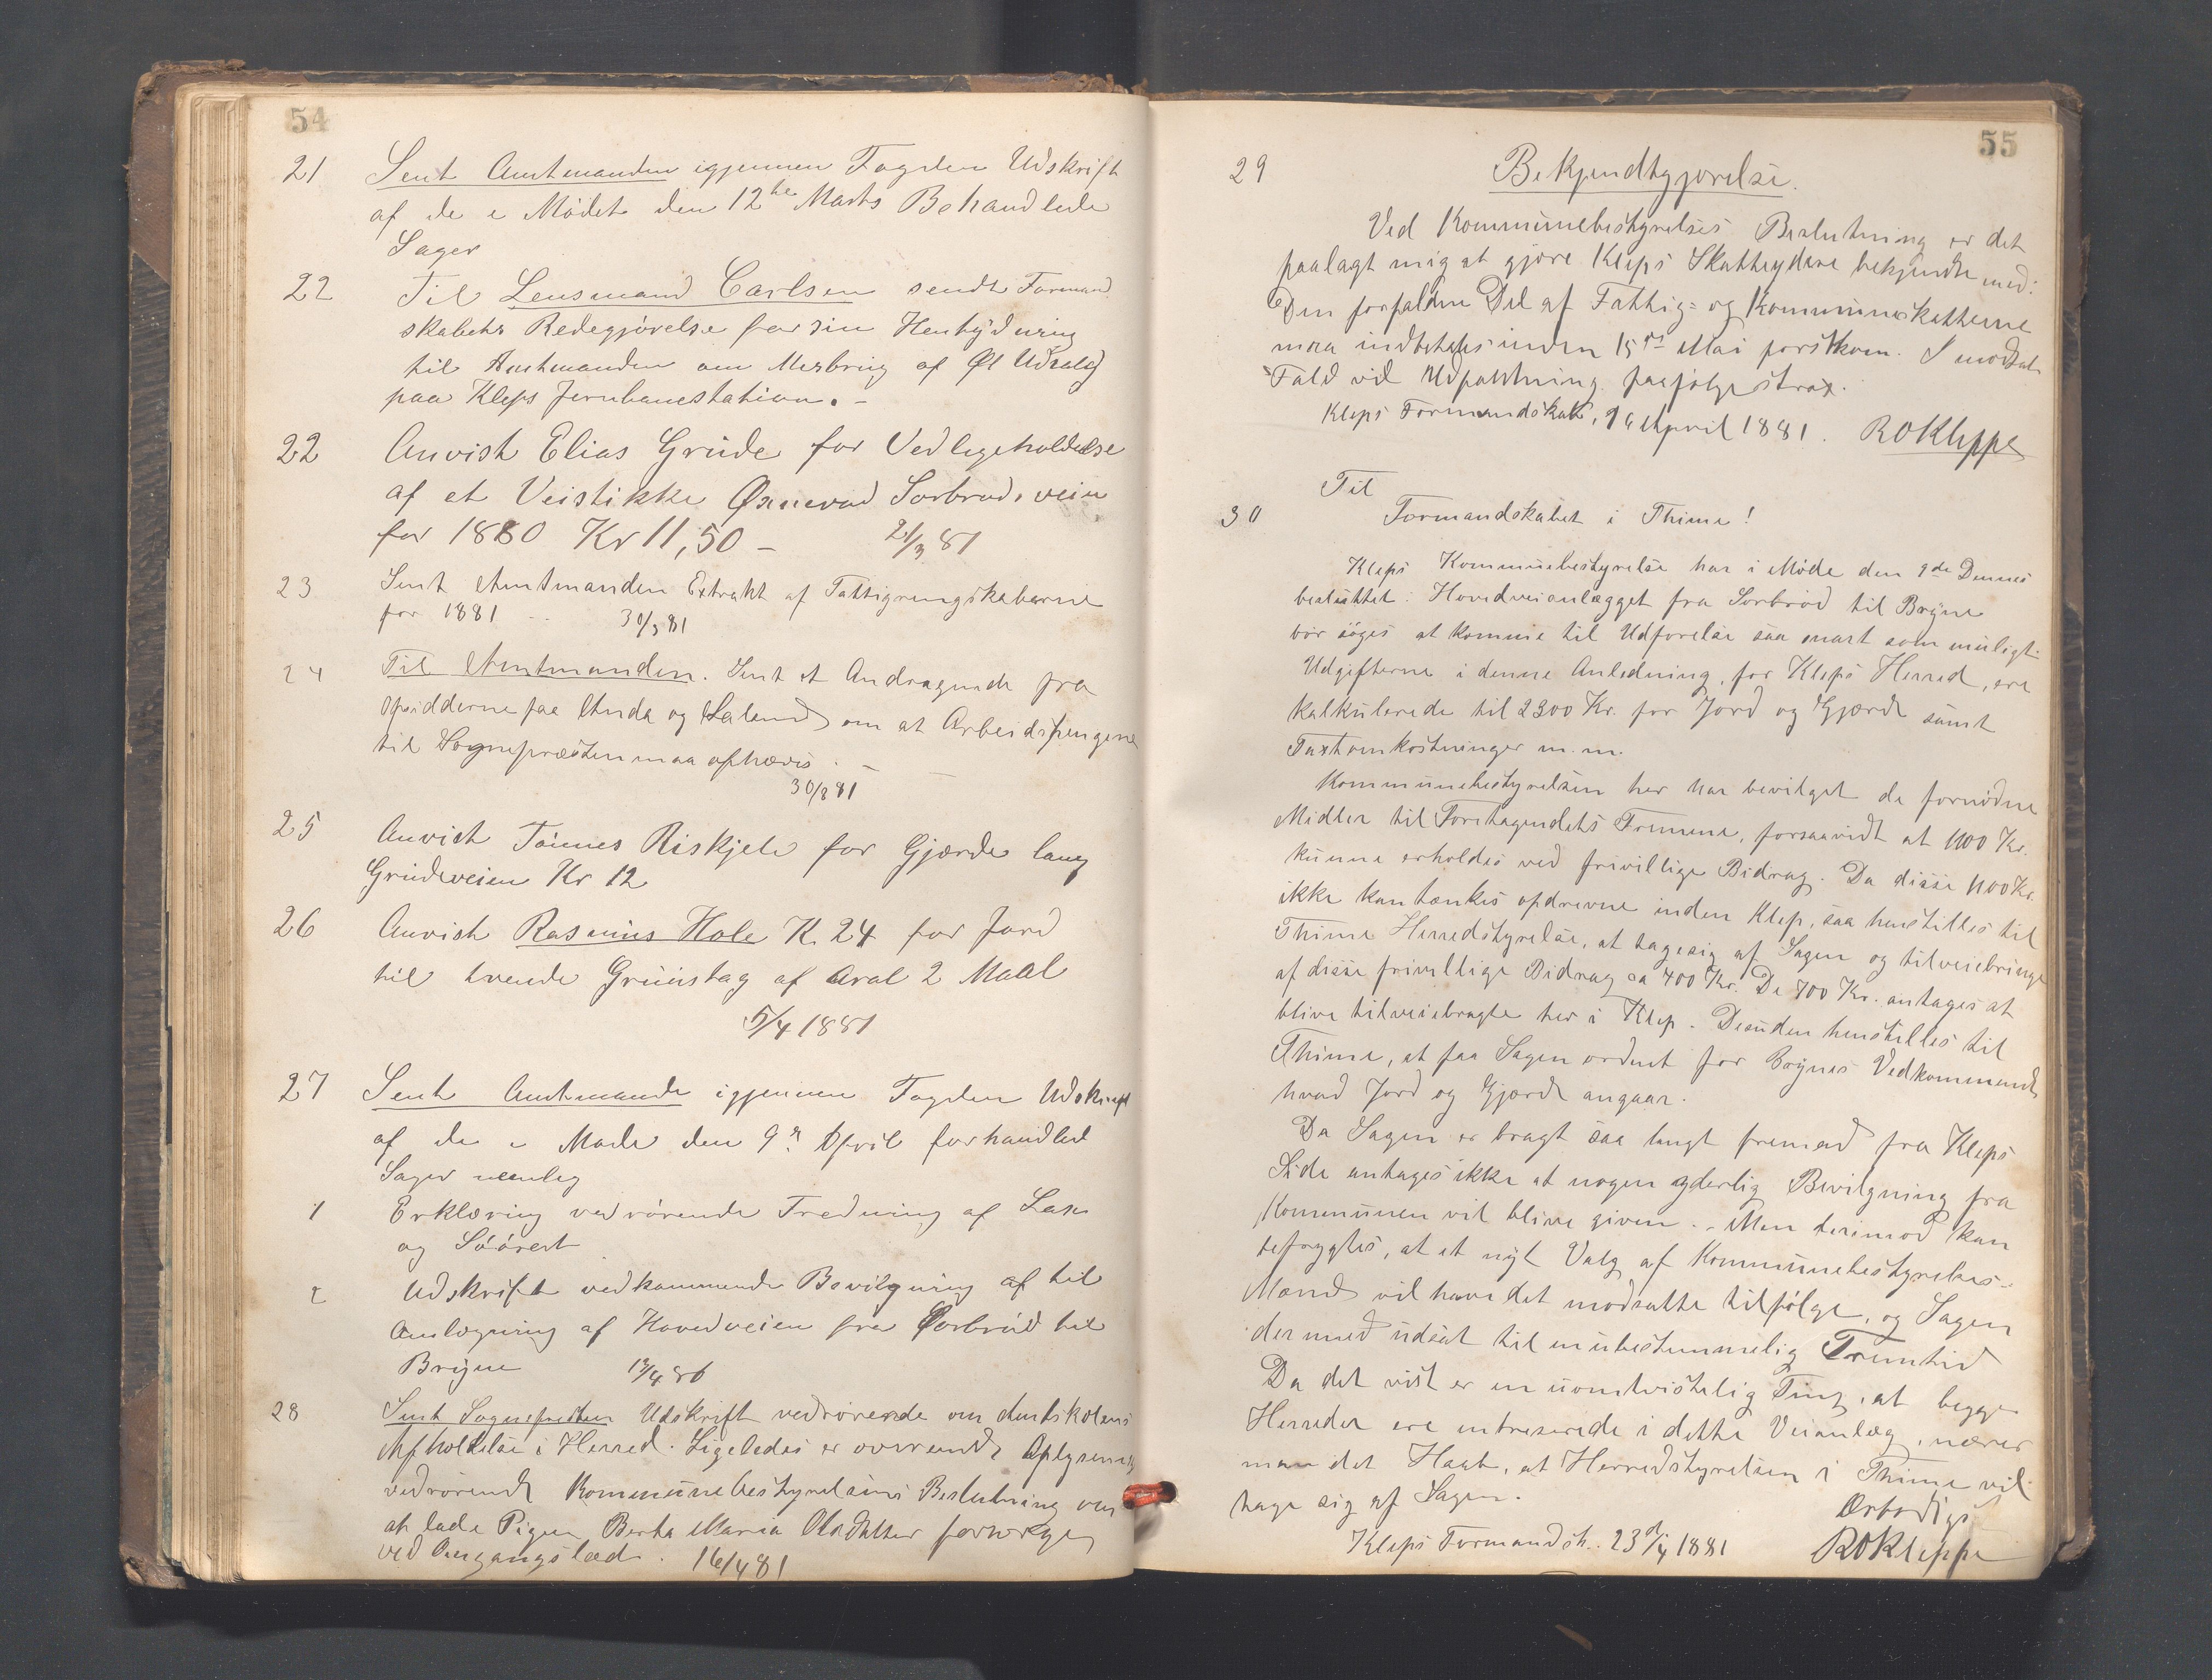 54
21 Sent Amtmanden igjennem Fogden Udskrift
af de i Mødet den 12te Marts Behandlede
Sager
22 Til Lensmand Carlsen sendt Formand
skabets Redegjörelse for sin Hentÿdning
til Amtmanden om Misbrug af Øl Udsalg
paa Kleps Jernbanestation. –
22 Anvist Elias Grude for Vedligeholdelse
af et Veistikke Øxnevad Sorbrøds veien
for 1880 Kr 11,50 – 21/3 81
23 Sent Amtmanden Extrakt af Fattigregnskaberne
for 1881 30/3 81
24 Til Amtmanden. Sent et Andragende fra
Opsidderne paa Anda og Laland om at Arbeidspengene
til Sognepræsten maa ophæves. –
30/3 81
25 Anvist Tönnes Riskjele for Gjærde lang
Grudeveien Kr 12
26 Anvist Rasmus Hole K. 24 for Jord
til tvende Gruustag af Aral 2 Maal
5/4 1881
27 Sent Amtmande igjennem Fogden Udskrift
af de i Møde den 9de April forhandled
Sager nemlig
1 Erklæring vedrörende Fredning af Lax
og Söörret
2 Udskrift vedkommende Bevilgning af til
Anlægning af Hovedveien fra Sorbröd til
Bryne
28 Sent Sognepresten Udskrift vedrørende om
Afholdelse i Herred. Ligeledes er oversendt Oplysning
vedrørende Kommunebestyrelsens Beslutning om
at lade Pigen Berta Maria Olsdatter forsørge
ved Omgangslæd. 16/4 81
55
29 Bekjendtgjørelse.
Ved Kommunebestyrelses Beslutning er det
paalagt mig at gjøre Kleps Skatteydere bekjendte med:
Den forfaldne Del af Fattig- og Kommuneskatterne
maa indbetales inden 15de Mai førstkom. I modsat
Fald vil Udpantning paafølge strax.
Kleps Formandskab, April 1881. R O Kleppe
Til
30 Formandskabet i Thime!
Kleps Kommunebestyrelse har i Møde den 9de Dennes
besluttet: Hovedveianlægget fra Sorbrød til Bryne
bør søges at komme til Udførelse saa snart som muligt.
Udgifterne i denne Anledning, for Kleps Herred, ere
kalkulerede til 2300 Kr. for Jord og Gjærde samt
Taxtomkostninger m.m.
Kommunebestyrelsen her har bevilget de fornødne
Midler til Foretagendets Fremme, forsaavidt at 1100 Kr.
kunne erholdes ved frivillige Bidrag. Da disse 1100 Kr.
ikke kan tænkes opdrevne inden Klep, saa henstilles til
Thime Herredstyrelse, at tage sig af Sagen og tilveiebringe
af disse frivillige Bidrag ca 400 Kr. De 700 Kr. antages at
blive tilveiebragte her i Klep. Desuden henstilles til
Thime, at faa Sagen ordnet for Brynes Vedkommende
hvad Jord og Gjærde angaar.
Da Sagen er bragt saa langt fremad fra Kleps
Side antages ikke at nogen yderlig Bevilgning fra
Kommunen vil blive given. – Men derimod kan
befrygtes, at et nyt Valg af Kommunebestyrelses-
Mænd vil have det modsatte tilfølge, og Sagen
dermed udsat til en ubestemmelig Fremtid
Da det vist er en uomtvistelig Ting, at begge
Herreder ere intreserede i dette Veianlæg, nærer
man det Haab, at Herredstyrelsen i Thime vil
tage sig af Sagen.
Ærbødigst
Kleps Formandsk. 23de/4 1881 R O Kleppe